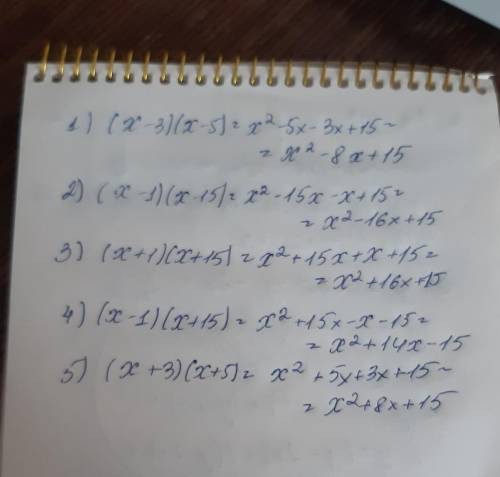 1) (x-3)(x-5)= x²-5x-3x+15=
= x²-8x+15
2) (x-1)(x-15)= x²-15x-x+15=
= x²-16x+15
3) (x+1)(x+15)= x²+15x+x+15=
= x²+16x+15
4) (x-1)(x+15)= x²+15x-x-15=
= x²+14x-15
5) (x+3)(x+5)= x²+5x+3x+15=
= x²+8x+15